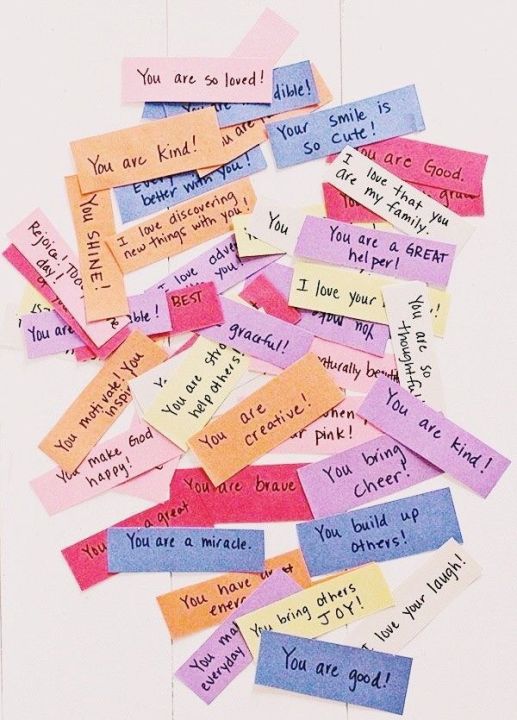 You are so loved!
dible!
Your smile is
so cute!
You are kind!
better with you!
You are Good.
I love that you
are my family.
You SHINE!
I love discovering
new things with you!
Rejoice!
day!
You
You are a GREAT
helper!
I love
you!
I love your
BEST
You are
ble!
graceful!
You are so
You make
You motivate! You
You are
help others!
You are
creative!
when
pink!
You are kind!
You make God
happy!
You are brave
You bring
cheer!
a great
You are a miracle.
You build up
others!
You have
You bring others
JOY!
I love your laugh!
You
everyday
You are good!